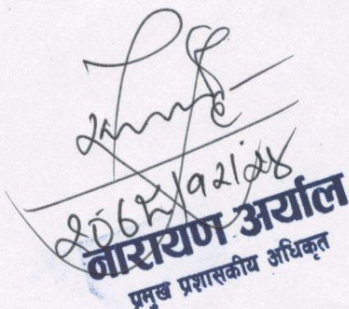 २०६८/१२/२४
नारायण अर्याल
प्रमुख प्रशासकीय अधिकृत